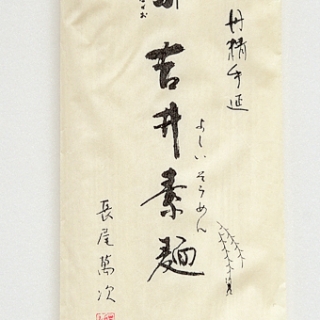 丹精手延
吉井素麺
よしい そうめん
長尾萬次